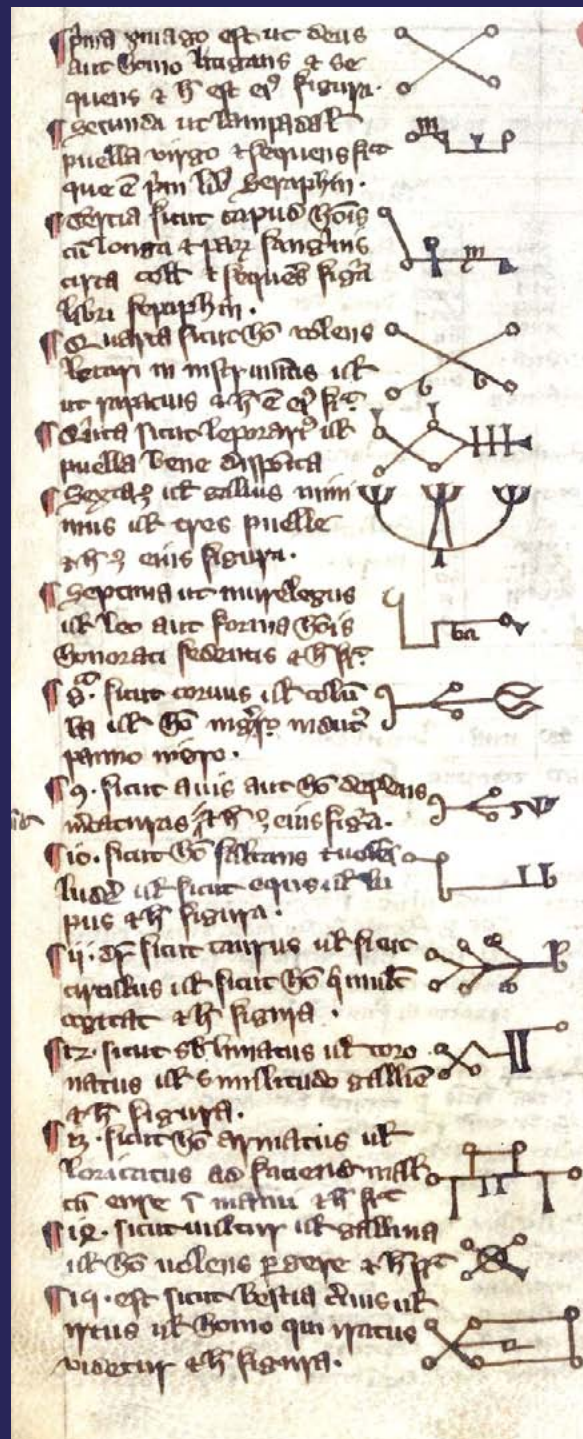 ¶ p̄ma ymago est ut deus
aut homo litigans ⁊ se
quens ⁊ h̄ est eiꝰ figura.
¶ Secunda ut lampada ul̄
puella virgo ⁊ sequens fit
que ē p̄m lib' Seraphin.
¶ Tercia sicut capud hoīs
cū longa ⁊ fanguīs
circa coll ⁊ sequēs figā
libri seraphin.
¶ Quarta sicut hō volens
letari in instrumētis ul̄
ut rapacius ⁊ h̄ ē eiꝰ fi.
¶ Qīnta sicut leporariꝰ ul̄
puella bene disposita
¶ Sexta ul̄ gallus mini
mus ul̄ tres puelle
⁊ h̄ eius figura.
¶ Septima ut murelegus
ul̄ leo aut forma hoīs
honorati sedentis ⁊ h̄ fi.
¶ 8ᵃ. sicut corvus ul̄ colū
ba ul̄ hō nigꝰ indutꝰ
panno nigro.
¶ 9. sicut avis aut hō depdens
⁊ h̄ eius figā.
¶ 10. sicut hō saltans ⁊ volēs
ludē ul̄ sicut equus ul̄ lu
pus ⁊ h̄ figura.
¶ 11. sicut taurus ul̄ sicut
circulus ul̄ sicut hō q̄ mult
cogitat ⁊ h̄ figura.
¶ 12. sicut sblimatus ul̄ coro
natus ul̄ similitudo galline
⁊ h̄ figura.
¶ 13. sicut hō armatus ul̄
loricatus ad faciend mal
cū ense ī manu ⁊ h̄ fi
¶ 14. sicut vultur ul̄ gallina
ul̄ hō volens pdere ⁊ h̄ fi
¶ est sicut bestia ul̄
ircus ul̄ homo qui iratus
videtur ⁊ h̄ figura.